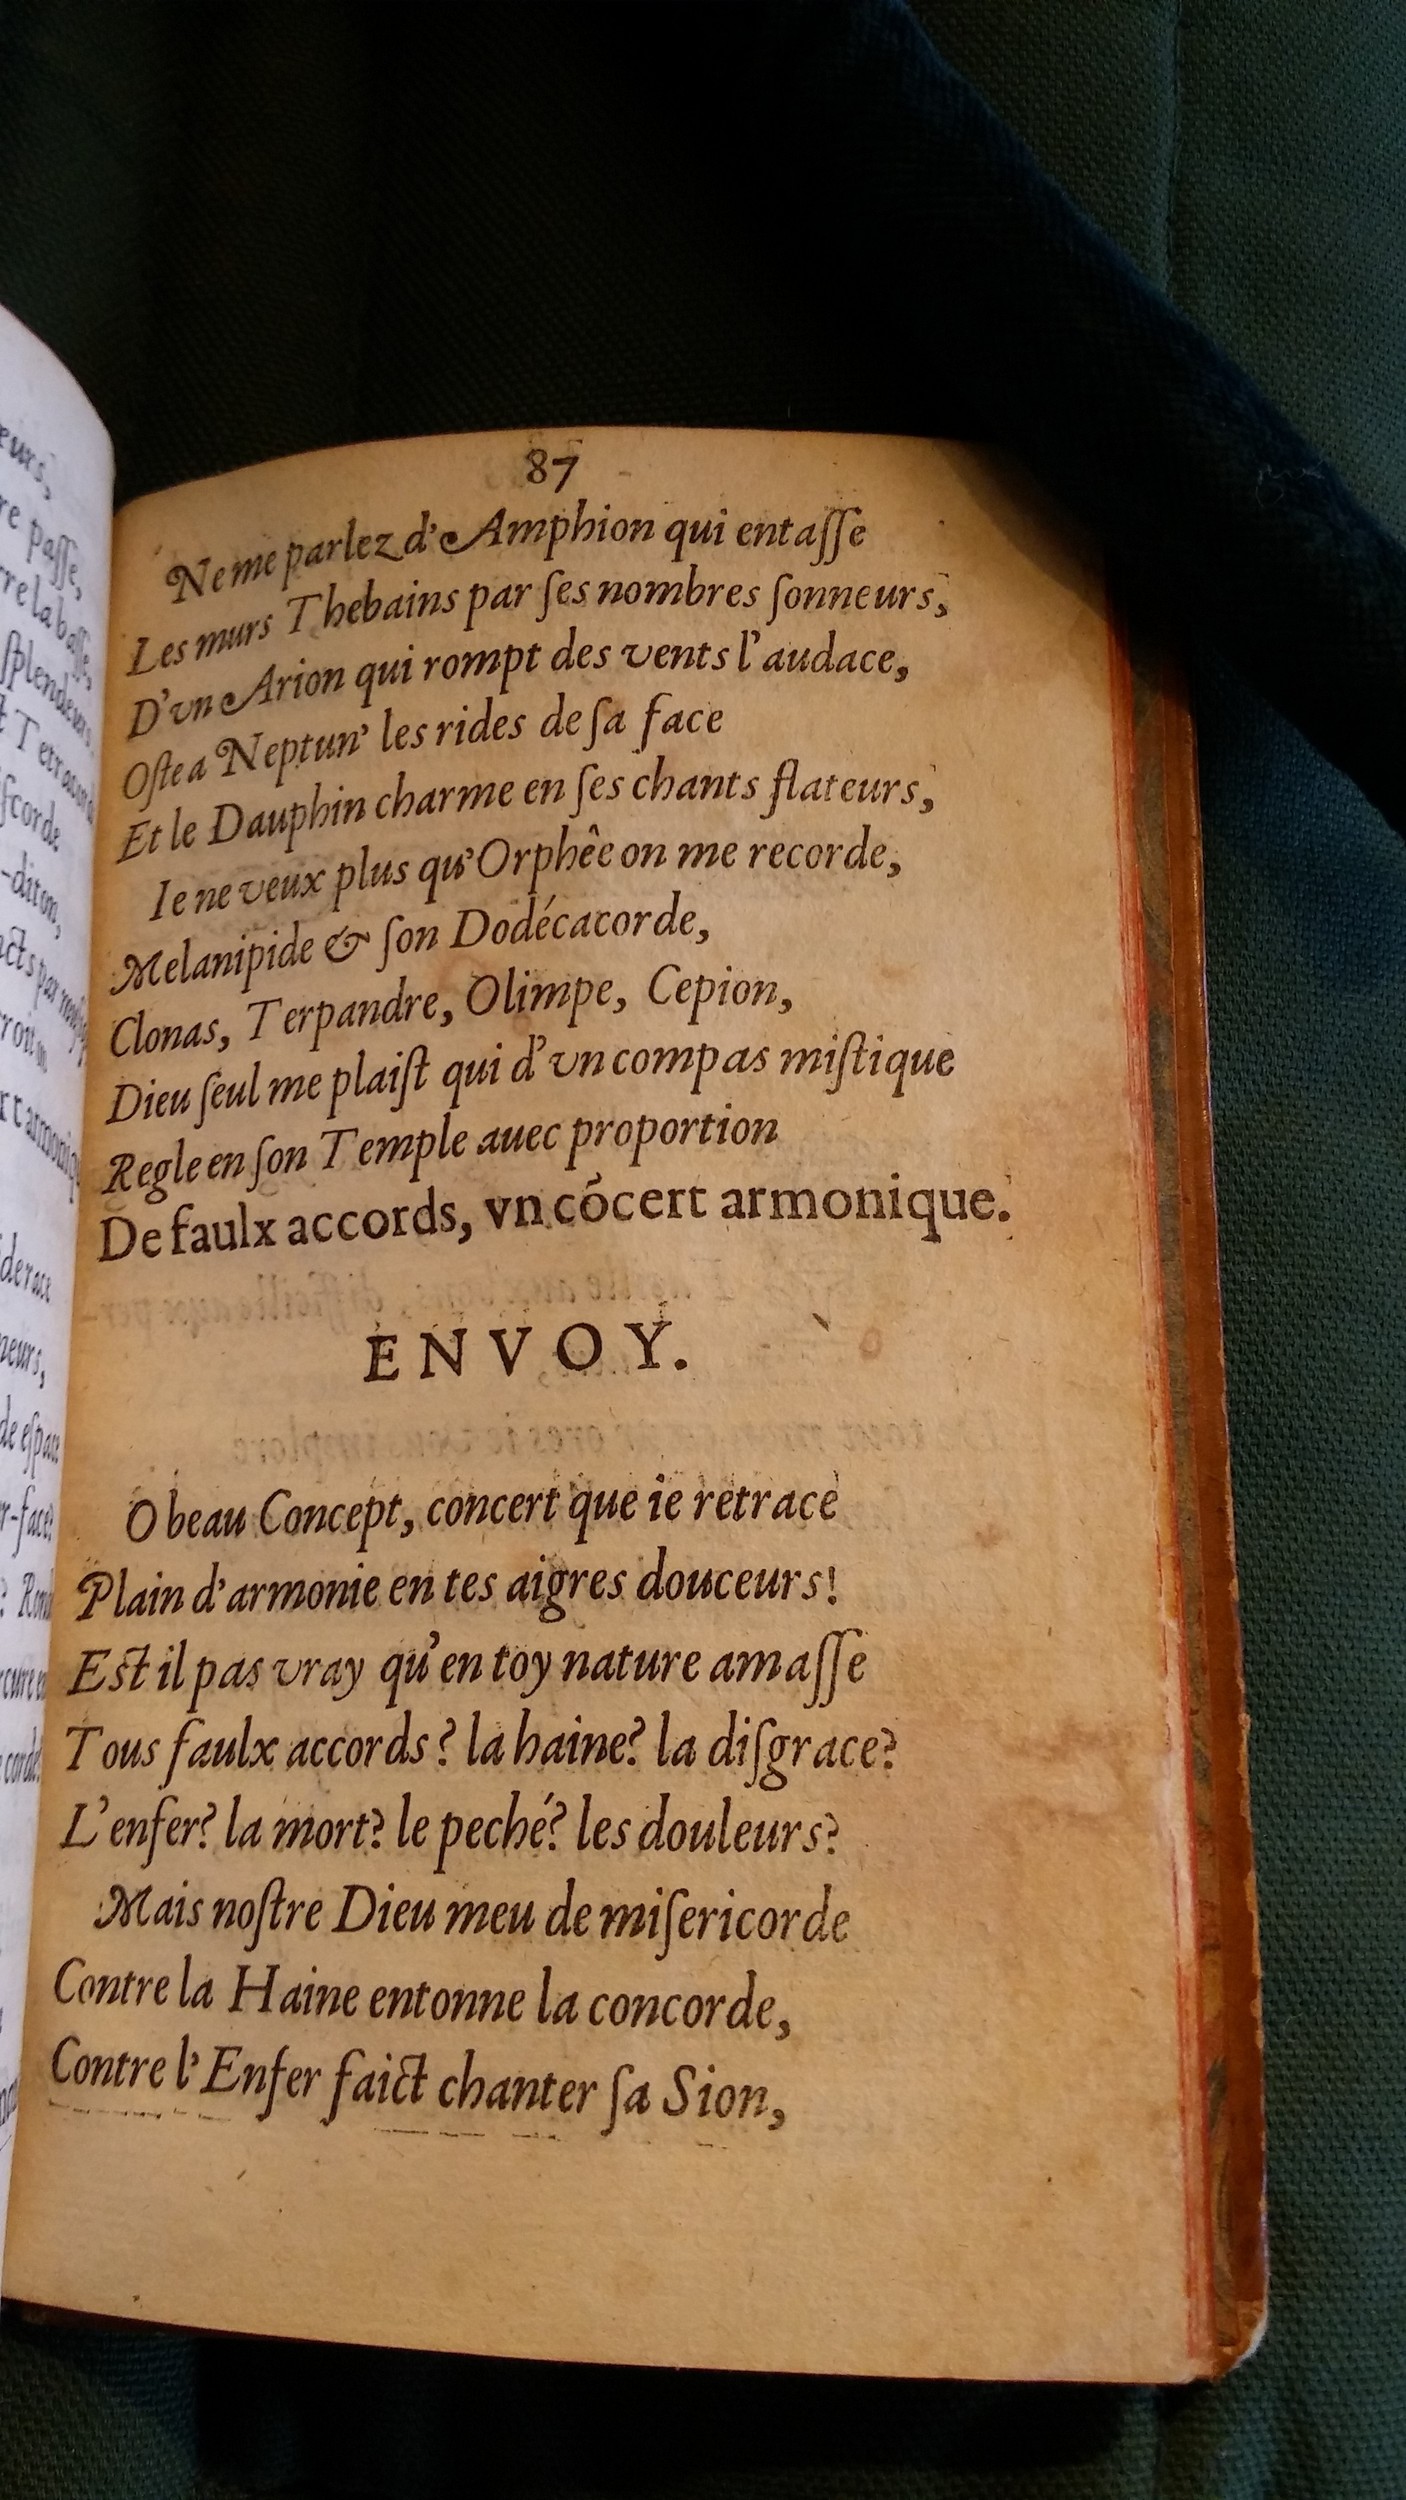 87
Ne me parlez d'Amphion qui entaſſe
Les murs Thebains par ſes nombres ſonneurs,
D'vn Arion qui rompt des vents l'audace,
Oſte a Neptun' les rides de ſa face
Et le Dauphin charme en ſes chants flateurs,
Ie ne veux plus qu'Orphêe on me recorde,
Melanipide & ſon Dodécacorde,
Clonas, Terpandre, Olimpe, Cepion,
Dieu ſeul me plaiſt qui d'vn compas miſtique
Regle en ſon Temple auec proportion
De faulx accords, vn cócert armonique.
ENVOY.
O beau Concept, concert que ie retrace
Plain d'armonie en tes aigres douceurs!
Est il pas vray qu'en toy nature amaſſe
Tous faulx accords? la haine? la diſgrace?
L'enfer? la mort? le peché? les douleurs?
Mais noſtre Dieu meu de miſericorde
Contre la Haine entonne la concorde,
Contre l'Enfer faict chanter ſa Sion,